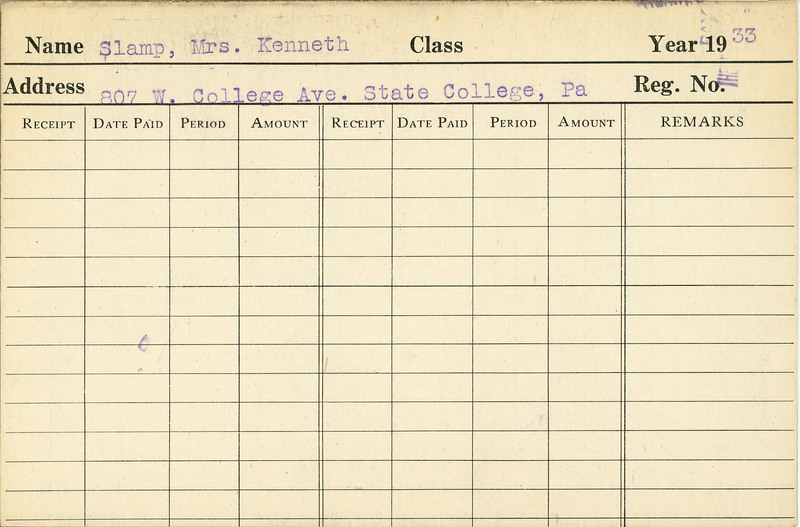 Name Slamp, Mrs. Kenneth Class Year 1933
Address 807 W. College Ave. State College, Pa Reg. No.
RECEIPT DATE PAID PERIOD AMOUNT RECEIPT DATE PAID PERIOD AMOUNT REMARKS